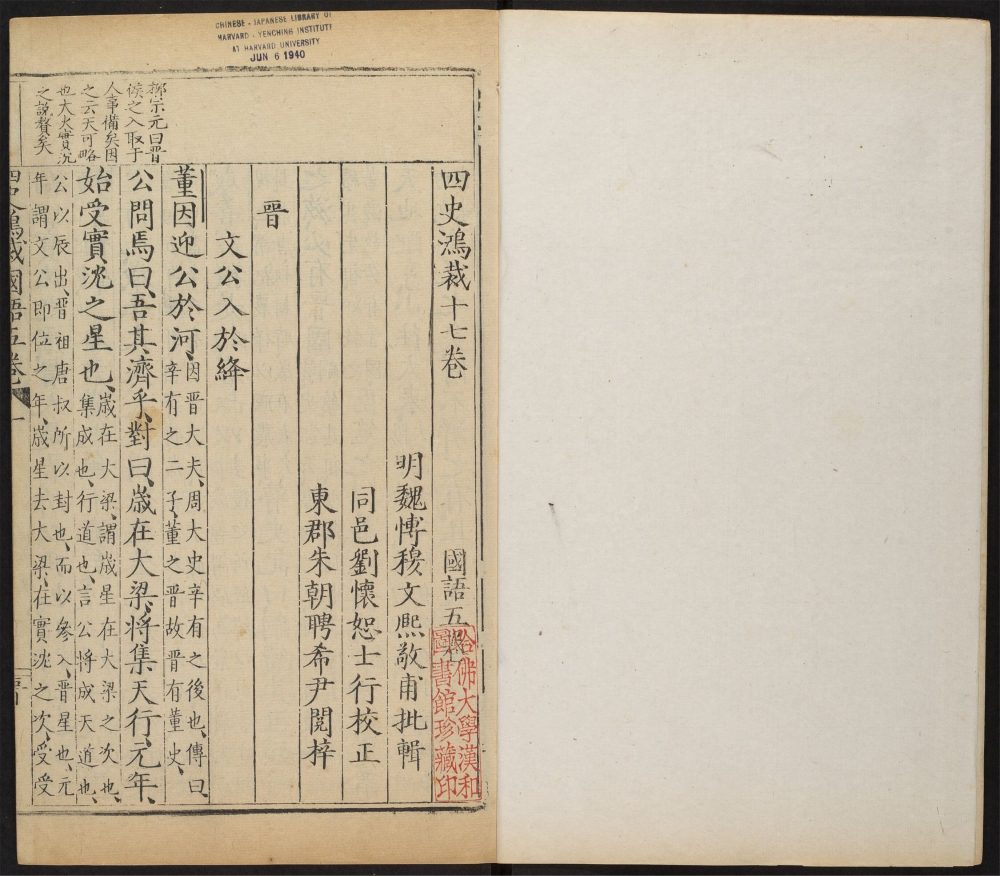 CHINESE - JAPANESE LIBRARY OF
HARVARD - YENCHING INSTITUTE
AT HARVARD UNIVERSITY
JUN 6 1940
四史鴻裁十七卷 國語五卷
哈佛大學漢和
圖書館珍藏印
明魏博穆文熙敬甫批輯
同邑劉懷恕士行校正
東郡朱朝聘希尹閱梓
晉
文公入於絳
董因迎公於河、因晉大夫、周大史辛有之後也、傳曰、
辛有之二子、董之晉、故晉有董史、
公問焉曰、吾其濟乎、對曰、歲在大梁、將集天行、元年、
始受實沈之星也、歲在大梁、謂歲星在大梁之次也、
集成也、行道也、言公將成天道也、
公以辰出、晉祖唐叔所以封也、而以參入、晉星也、元
年謂文公即位之年、歲星去大梁、在實沈之次、受受
柳宗元曰晉
侯之入取于
人事備矣因
之云天可略
也大火實沈
之說贅矣
四史鴻裁國語五卷 一